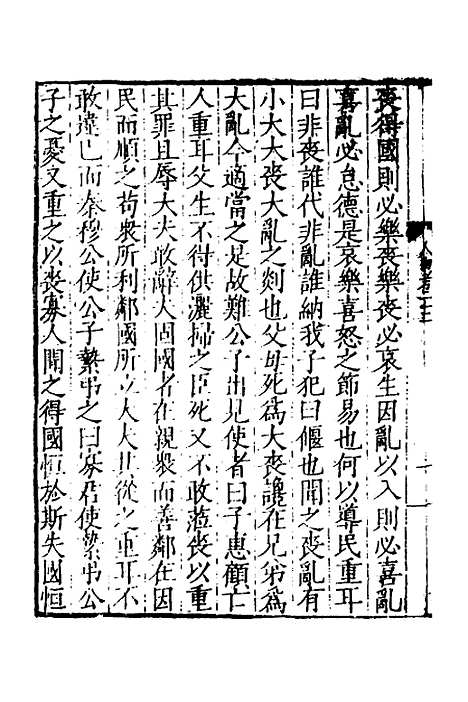 喪得國則必樂喪樂喪必哀生因亂以入則必喜亂
喜亂必怠德是哀樂喜怒之節易也何以導民重耳
曰非喪誰代非亂誰納我子犯曰偃也聞之喪亂有
小大大喪大亂之剡也父母死爲大喪讒在兄弟爲
大亂今適當之是故難公子出見使者曰子惠顧亡
人重耳父生不得供灑掃之臣死又不敢蒞喪以重
其罪且辱大夫敢辭大固國者在親衆而善鄰在因
民而順之苟衆所利鄰國所立大夫其從之重耳不
敢違也而秦穆公使公子縶弔之曰寡君使縶弔公
子之憂又重之以喪寡人聞之得國恒於斯失國恒